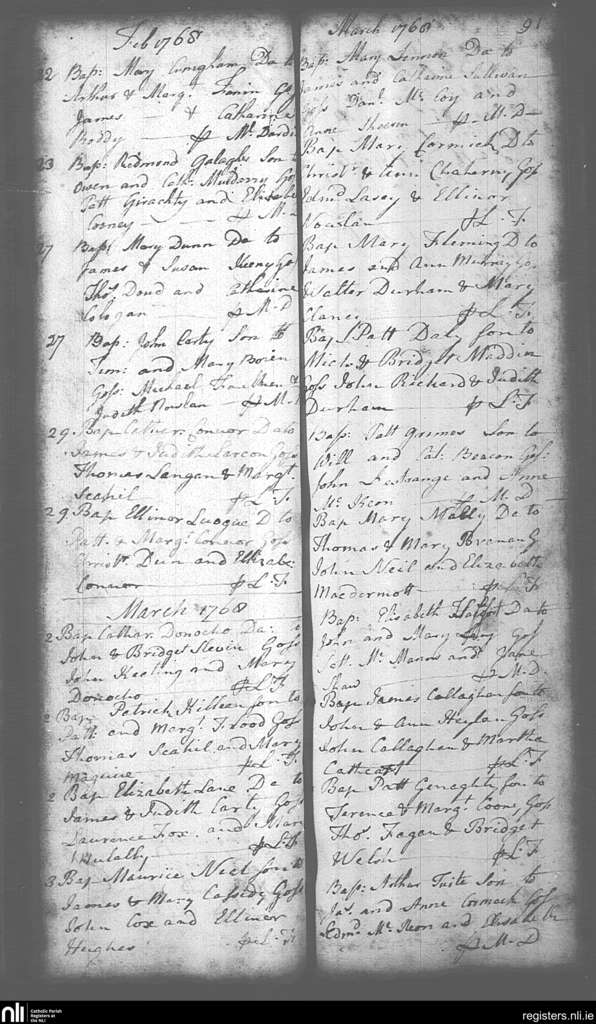 Feb 1768
22 Bap: Mary Cunigham Da to
Arthur & Margt
James & Catharine
Boddy
23 Bap: Redmond Galagher Son
Owen and Cath: Mulderry
Patt Giraghty and
Corney
27 Bap: Mary Dunn Da to
James & Susan
Thos Doud and Catharine
27 Bap: John Carty Son to
Tim: and Mary
Goss: Michael &
Judith Nowlan
29 Bap Cather: Connor Da to
James & Judith Goss
Thomas Langan & Margt
Scahil L: F:
29 Bap Ellinor D to
Patt: & Margt Connor Goss
and
Connor L: F:
March 1768
2 Bap Cathar: Donocho Da:
John & Bridget Goss
John Keeling and Mary
Donocho L: F:
2 Bap Patrick Killeen son to
Patt: and Margt Flood Goss
Thomas Scahil and Mary
Maguire L: F:
2 Bap Elizabeth Lane Da to
James & Judith Carty Goss
Laurence Fox and
Mulally L: F:
3 Bap Maurice Neil son to
James & Mary Cassidy Goss
John Cox and Ellinor
Hughes L: F:
March 1768 91
Bap: Mary Lennon Da to
James and Catherine Sullivan
Goss Danl Mc Coy and
Anne M-D
Bap Mary Cormick D to
Christr & Goss
Edmd Lasey & Ellinor
Nowlan L: F:
Bap Mary Fleming D to
James and Ann Murray Go
Walter Durham & Mary
Clancy L: F:
Bap Patt Daly son to
Michl & Bridget Madden
Goss John Richard & Judith
Durham L: F:
Bap: Patt Grimes Son to
Will and Cat: Beacon Goss:
John Lestrange and Anne
Mc Keon M-D
Bap Mary Mally Da to
Thomas & Mary
John Neil and Elizabeth
Macdermott L: F:
Bap: Elisabeth Da to
John and Mary Goss
Patt: Mc Manus and Jane
Shaw M-D
Bap James Callaghan son to
John & Ann Heylan Goss
John Callaghan & Martha
Cathcart L: F:
Bap Patt Geraghty son to
Terence & Margt Coone, Goss
Thos Fagan & Bridget
Welsh L: F:
Bap: Arthur Tuite Son to
Jas and Anne Cormack Goss
Edmd Mc Keon and Elisabeth
M-D
nli
Catholic Parish
Registers at
the NLI
registers.nli.ie